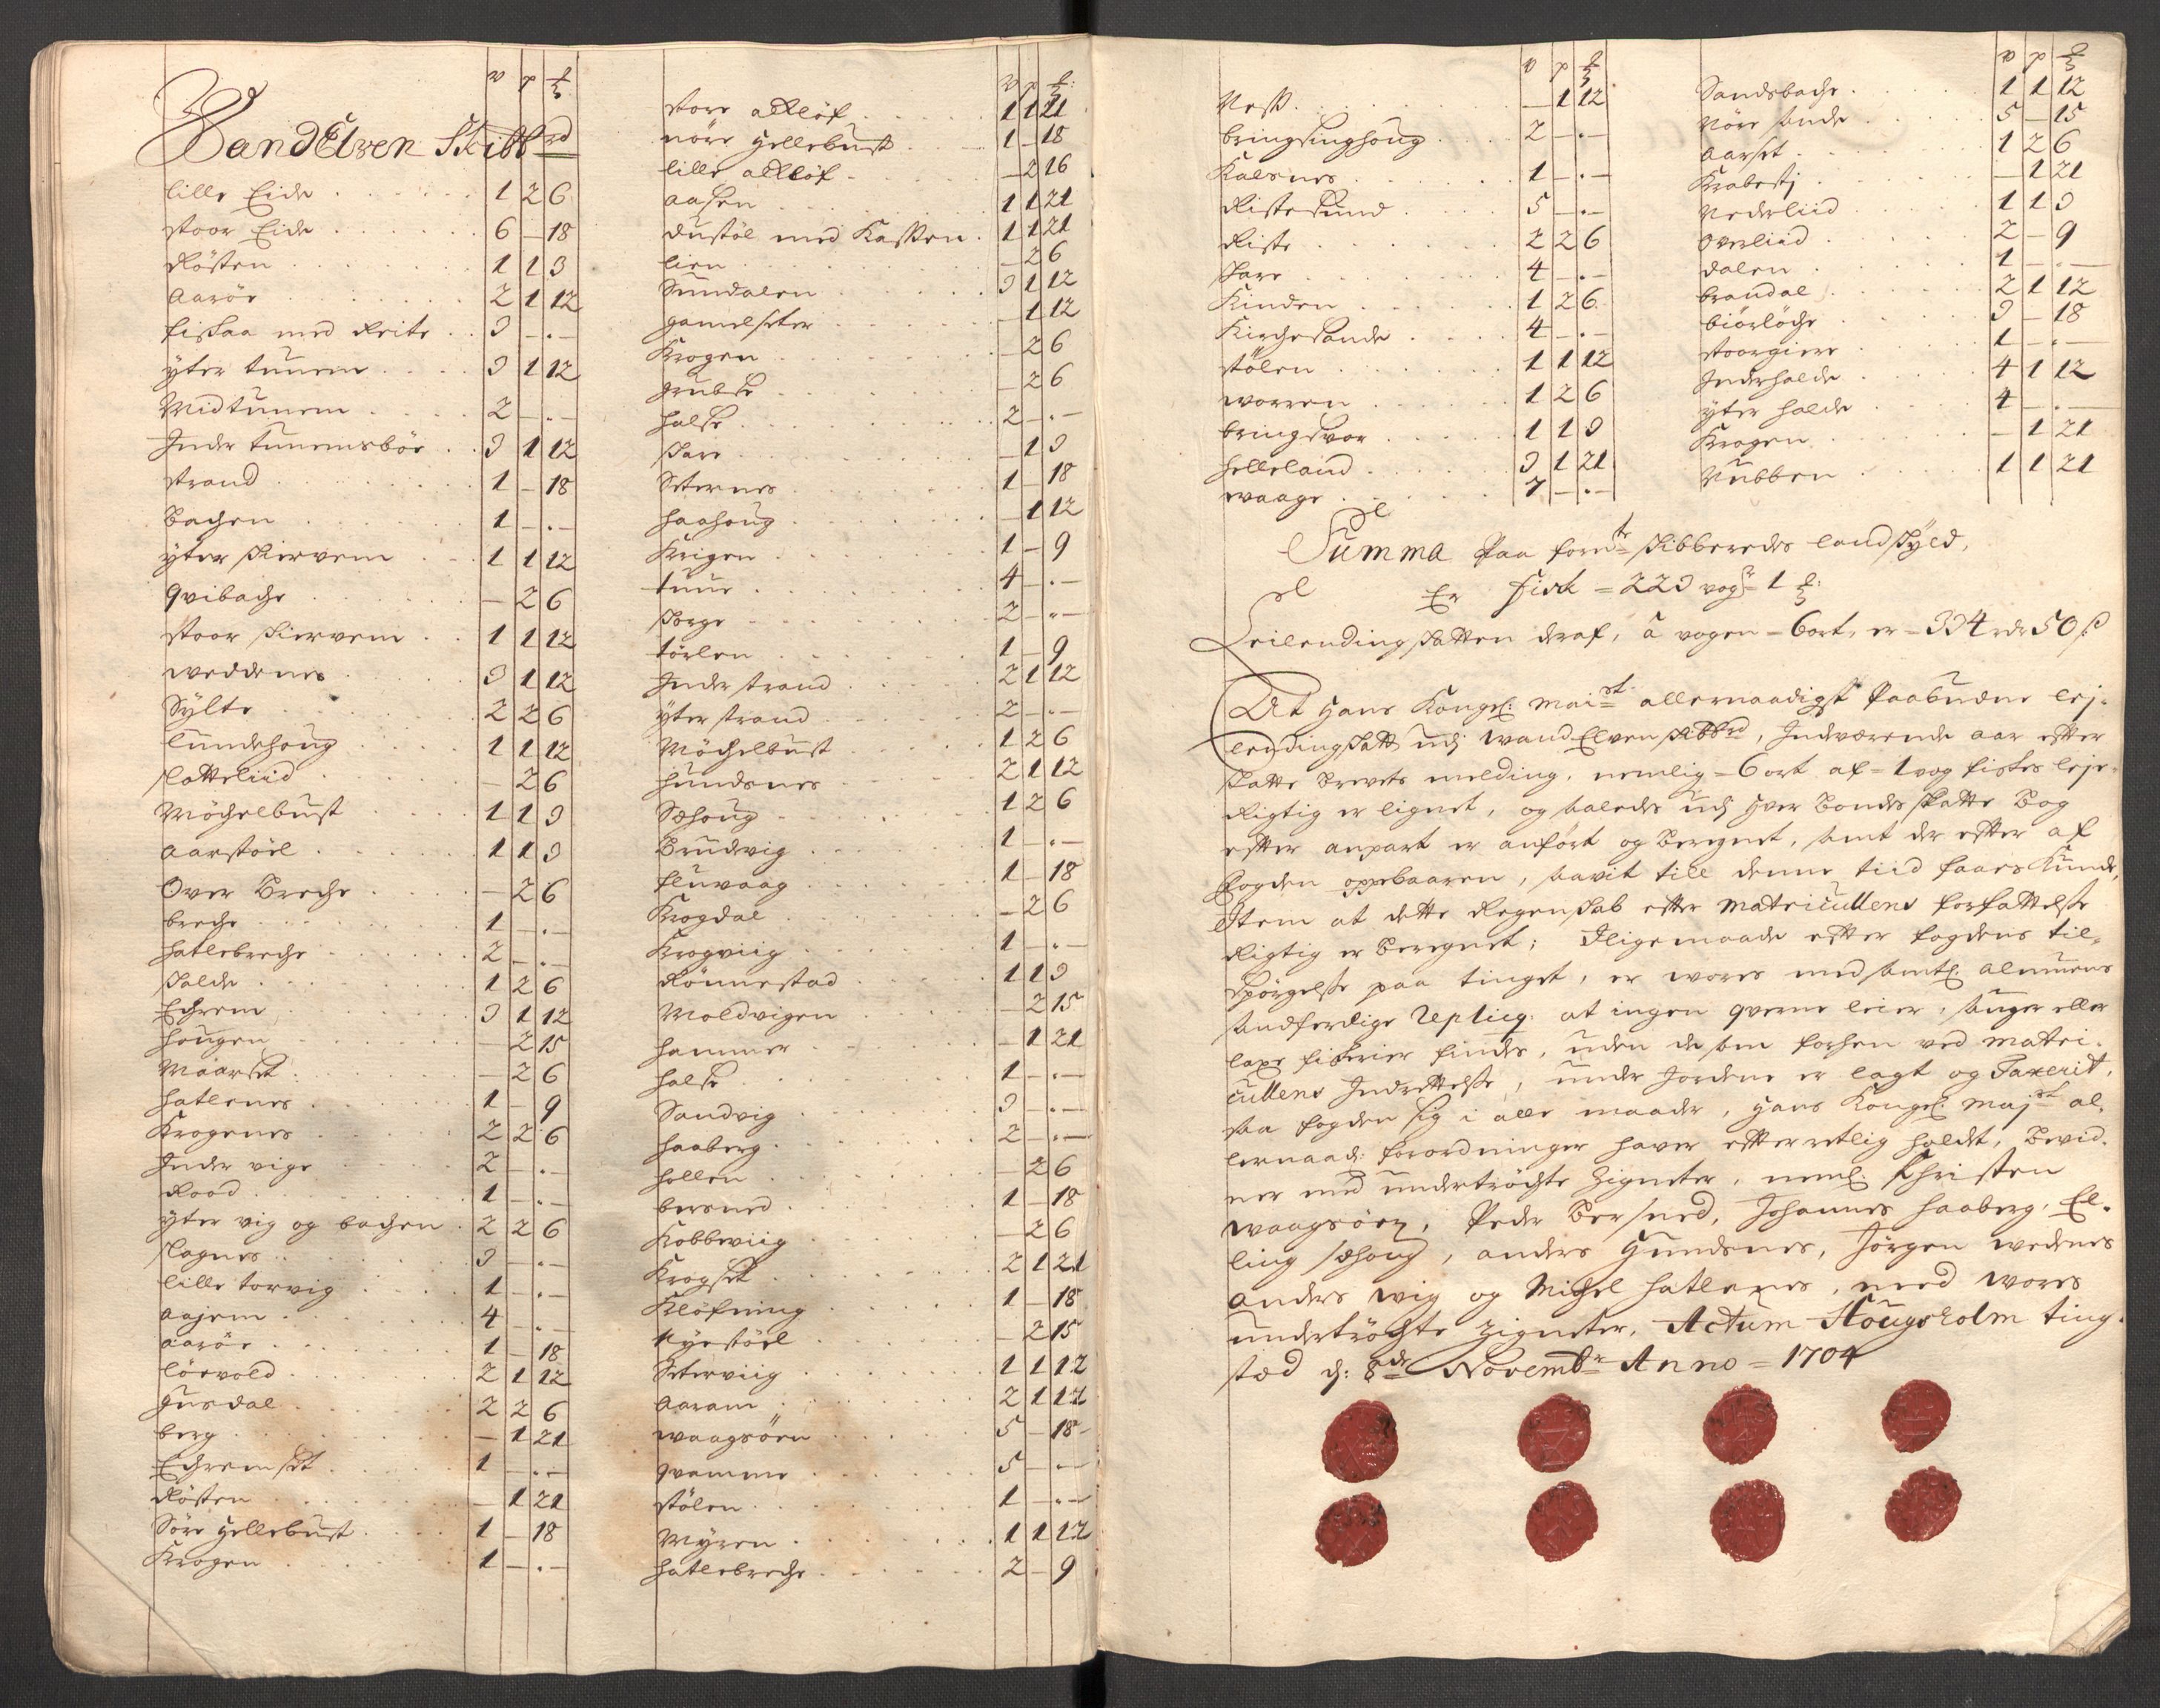 v p ℔
WandElven Skibbrd
lille Eide . . . 1 2 6
stoor Eide . . . 6 – 18
Røsten . . . 1 1 3
Aarøe . . . 2 1 12
fiskaa med Reite . . 3 – . –
ytter tunem . . . 3 1 12
Midtunem . . . 2 – . –
Inder tunemsbøe . . 3 1 12
strand . . . 1 – 18
Bachen . . . 1 – . –
ytter skiervem . . 1 1 12
qvibache . . . – 2 6
stoor skiervem . . 1 1 12
weddenes . . . 3 1 12
Sylte . . . 2 2 6
lundehoug . . . 1 1 12
slatteliid . . . – 2 6
Møchelbust . . . 1 1 3
aarstøel . . . 1 1 3
Over Breche . . . – 2 6
breche . . . 1 – . –
hatlebreche . . . 2 – . –
skalde . . . 1 2 6
Echrem . . . 3 1 12
hougen . . . – 2 15
Maarset . . . – 2 6
hatlenes . . . 1 – 9
Krogenes . . . 2 2 6
Inder vige . . . 2 – . –
Rood . . . 1 – . –
ytter vig og bachen . 2 2 6
slagnes . . . 3 – . –
lille torvig . . . 1 – . –
aajem . . . 4 – . –
aarøe . . . 1 – 18
løevold . . . 2 1 12
gusdal . . . 2 2 6
berg . . . – 1 21
Echremset . . . 1 – . –
Røsten . . . – 1 21
Søre hellebust . . . 1 – 18
Krogen . . . 1 – . –
v p ℔
store adkløf . . . 1 1 21
nøre hellebust . . . 1 – 18
lille adkløf . . . – 2 16
aasen . . . 1 1 21
dustøl med Kasken . 1 1 21
lien . . . – 2 6
Sundalen . . . 3 1 12
gamelseter . . . – 1 12
Krogen . . . – 2 6
grubse . . . – 2 6
halse . . . 2 – . –
skare . . . – 1 3
Seternes . . . 1 – 18
haahoug . . . – 1 12
Krigen . . . 1 – 9
tuue . . . 4 – . –
skorge . . . 2 – . –
tørlen . . . 1 – 9
Inderstrand . . . 2 1 12
ytterstrand . . . 2 – . –
Møchelbust . . . 1 2 6
hundsnes . . . 2 1 12
Søhoug . . . 1 2 6
Brudevig . . . 1 – . –
fluvaag . . . 1 – 18
Krogdal . . . – 2 6
Krogviig . . . 1 – . –
Rønnestad . . . 1 1 3
Moldvigen . . . – 2 15
hammer . . . – 1 21
halse . . . 1 – . –
Sandvig . . . 3 – . –
haaberg . . . 2 – . –
hollen . . . – 2 6
bersned . . . 1 – 18
Kobbeviig . . . – 2 6
Krogset . . . 2 1 21
Kløfning . . . 1 – 18
Nyestøel . . . – 2 15
Seterviig . . . 1 1 12
Aaram . . . 2 1 12
waagsøen . . . 5 – 18
qvamme . . . 5 – . –
stølen . . . 1 – . –
Myren . . . 1 1 12
hatlebreche . . . 2 – 9
v p ℔
Ness . . . – 1 12
bringsinghoug . . . 2 – . –
Kalsnes . . . 1 – . –
Ristesund . . . 5 – . –
Riste . . . 2 2 6
skare . . . 4 – . –
Kinden . . . 1 2 6
Kirchesande . . . 4 – . –
stølen . . . 1 1 12
worren . . . 1 2 6
bringsvor . . . 1 1 3
helleland . . . 3 1 21
waage . . . 7 – . –
v p ℔
Sandsbache . . . 1 1 12
Nøre sande . . . 5 – 15
aarset . . . 1 2 6
Krabestj . . . – 1 21
Nederliid . . . 1 1 3
Overliid . . . 2 – 9
dalen . . . 1 – . –
brandal . . . 2 1 12
biørløche . . . 3 – 18
stoorgiere . . . 1 – . –
Inderhalde . . . 4 1 12
ytter halde . . . 4 – . –
Krogen . . . – 1 21
Nubben . . . 1 1 21
Summa Paa forne skibberedes landskyld,
Er fisk = 223 voger = 1 ℔:
Leilendingskatten deraf, â vogen = 6 ort, er = 334 rdr 50 s
At Hans Kongel: Maist allernaadigst Paabudne lej-
lendingskatt udj WandElven skibbrd, Indværende aar effter
skatte brevets melding, nemlig = 6 ort af = 1 vog fiskes leje
Rigtig er lignet, og saaledes udj hver Bondes skatte Bog
effter anpart er anført og beregnet, samt der effter af
fogden oppebaaren, saavit till denne tiid faaes Kunde,
Item at dette Regenskab effter matricullens forfattelse
Rigtig er beregnet; Iligemaade effter fogdens til-
spørgelse paa tinget, er wores med samtl: almuens
sandferdige Replicq: at ingen qverne leier, sauger eller
laxe fiskerier findes, uden de som forhen ved matri-
cullens Indrettelse, under Jordene er lagt og Taxerit,
saa fogden sig i alle maader, Hans Kongel: Majst al-
lernaad: forordninger haver effterretlig holdt, bevid-
ner med undertrøchte Zigneter, neml: Christen
waagsøen, Peder Bersned, Johannes haaberg, El-
ling søhoug, anders Hundsnes, Jørgen wedenes
anders wig og Michel hatlenes, med wores
undertrøchte zigneter, Actum Hougsholm ting-
stæd d: 8de Novembr Anno = 1704